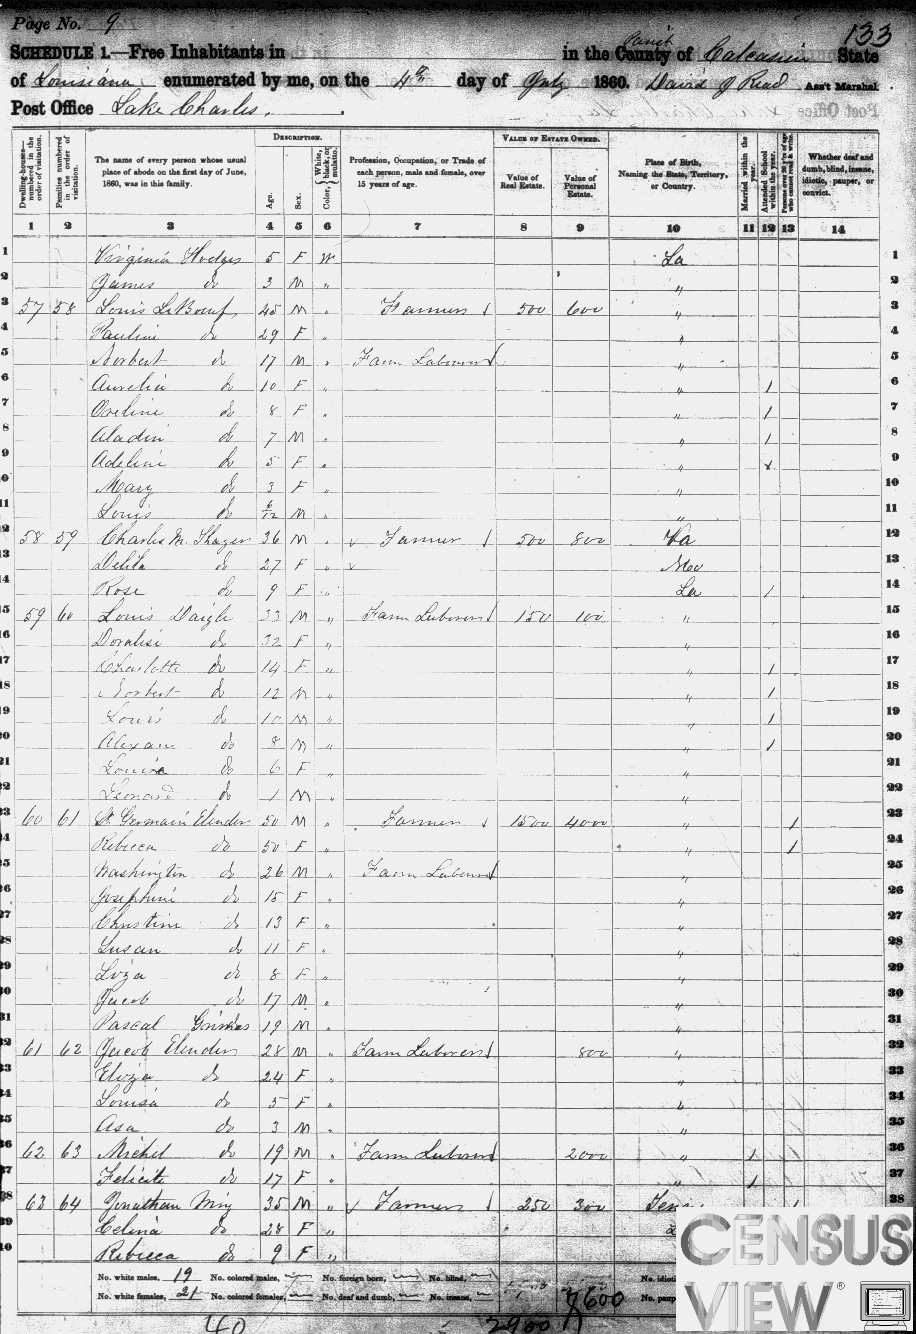 Page No. 9
133
SCHEDULE 1.—Free Inhabitants in in the County of Parish Calcasieu State
of Louisiana enumerated by me, on the 4th day of July 1860. David J Read Ass't Marshal.
Post Office Lake Charles.
Dwelling-houses—numbered in the order of visitation. Families numbered in the order of visitation. The name of every person whose usual place of abode on the first day of June, 1860, was in this family. DESCRIPTION. Age. Sex. Color, White, black, or mulatto. Profession, Occupation, or Trade of each person, male and female, over 15 years of age. VALUE OF ESTATE OWNED. Value of Real Estate. Value of Personal Estate. Place of Birth, Naming the State, Territory, or Country. Married within the year. Attended School within the year. Persons over 20 y'rs of age who cannot read & write. Whether deaf and dumb, blind, insane, idiotic, pauper, or convict.
1 2 3 4 5 6 7 8 9 10 11 12 13 14
1 Virginia Hodges 5 F W La 1
2 James do 3 M " " 2
3 57 58 Louis LeBoeuf 45 M " Farmer 500 600 " 3
4 Pauline do 29 F " " 4
5 Norbert do 17 M " Farm Laborer " 5
6 Aurelia do 10 F " " 1 6
7 Oveline do 8 F " " 1 7
8 Aladin do 7 M " " 1 8
9 Adeline do 5 F " " 9
10 Mary do 3 F " " 10
11 Louis do 6/12 M " " 11
12 58 59 Charles M. 36 M " Farmer 500 800 12
13 Delila do 27 F " Mo 13
14 Rose do 9 F " La 1 14
15 59 60 Louis Daigle 33 M " Farm Laborer 150 100 " 15
16 Doralisi do 32 F " " 16
17 Charlotte do 14 F " " 1 17
18 Norbert do 12 M " " 1 18
19 Louis do 10 M " " 1 19
20 Alexan do 8 M " " 1 20
21 Louisa do 6 F " " 21
22 Leonard do 1 M " " 22
23 60 61 St Germain Elender 50 M " Farmer 1500 4000 " 1 23
24 Rebecca do 50 F " " 1 24
25 Washington do 26 M " Farm Laborer " 25
26 Josephine do 15 F " " 26
27 Christine do 13 F " " 27
28 Susan do 11 F " " 28
29 Liza do 8 F " " 29
30 Jacob do 17 M " " 30
31 Pascal Grimes 19 M " " 31
32 61 62 Jacob Elender 28 M " Farm Laborer 800 " 32
33 Eliza do 24 F " " 33
34 Louisa do 5 F " " 34
35 Asa do 3 M " " 35
36 62 63 Michel do 19 M " Farm Laborer 2000 " 1 36
37 Felicite do 17 F " " 1 37
38 63 64 Jonathan Ming 35 M " Farmer 250 300 Ten 38
39 Celina do 28 F "
40 Rebecca do 9 F "
No. white males, 19 No. colored males, No. foreign born, No. blind, No. idiotic
No. white females, 21 No. colored females, No. deaf and dumb, No. insane, No. paup
40 2900 7600
CENSUS
VIEW®